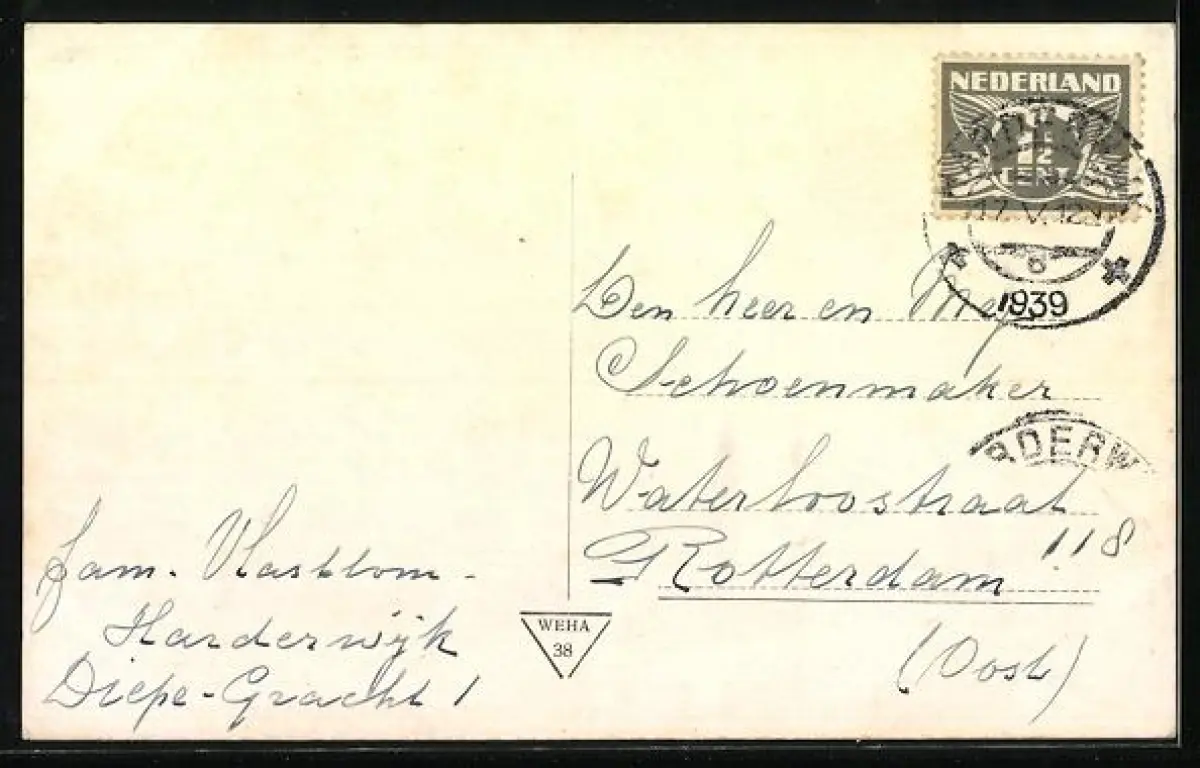 NEDERLAND
1½
CENT
HARDERWIJK
17.V.12
6
1939
Den heer en Mej.
Schoenmaker
RDERW
Waterloostraat
118
Rotterdam
(Oost)
fam. Vlastblom -
Harderwijk
Diepe-Gracht 1
WEHA
38